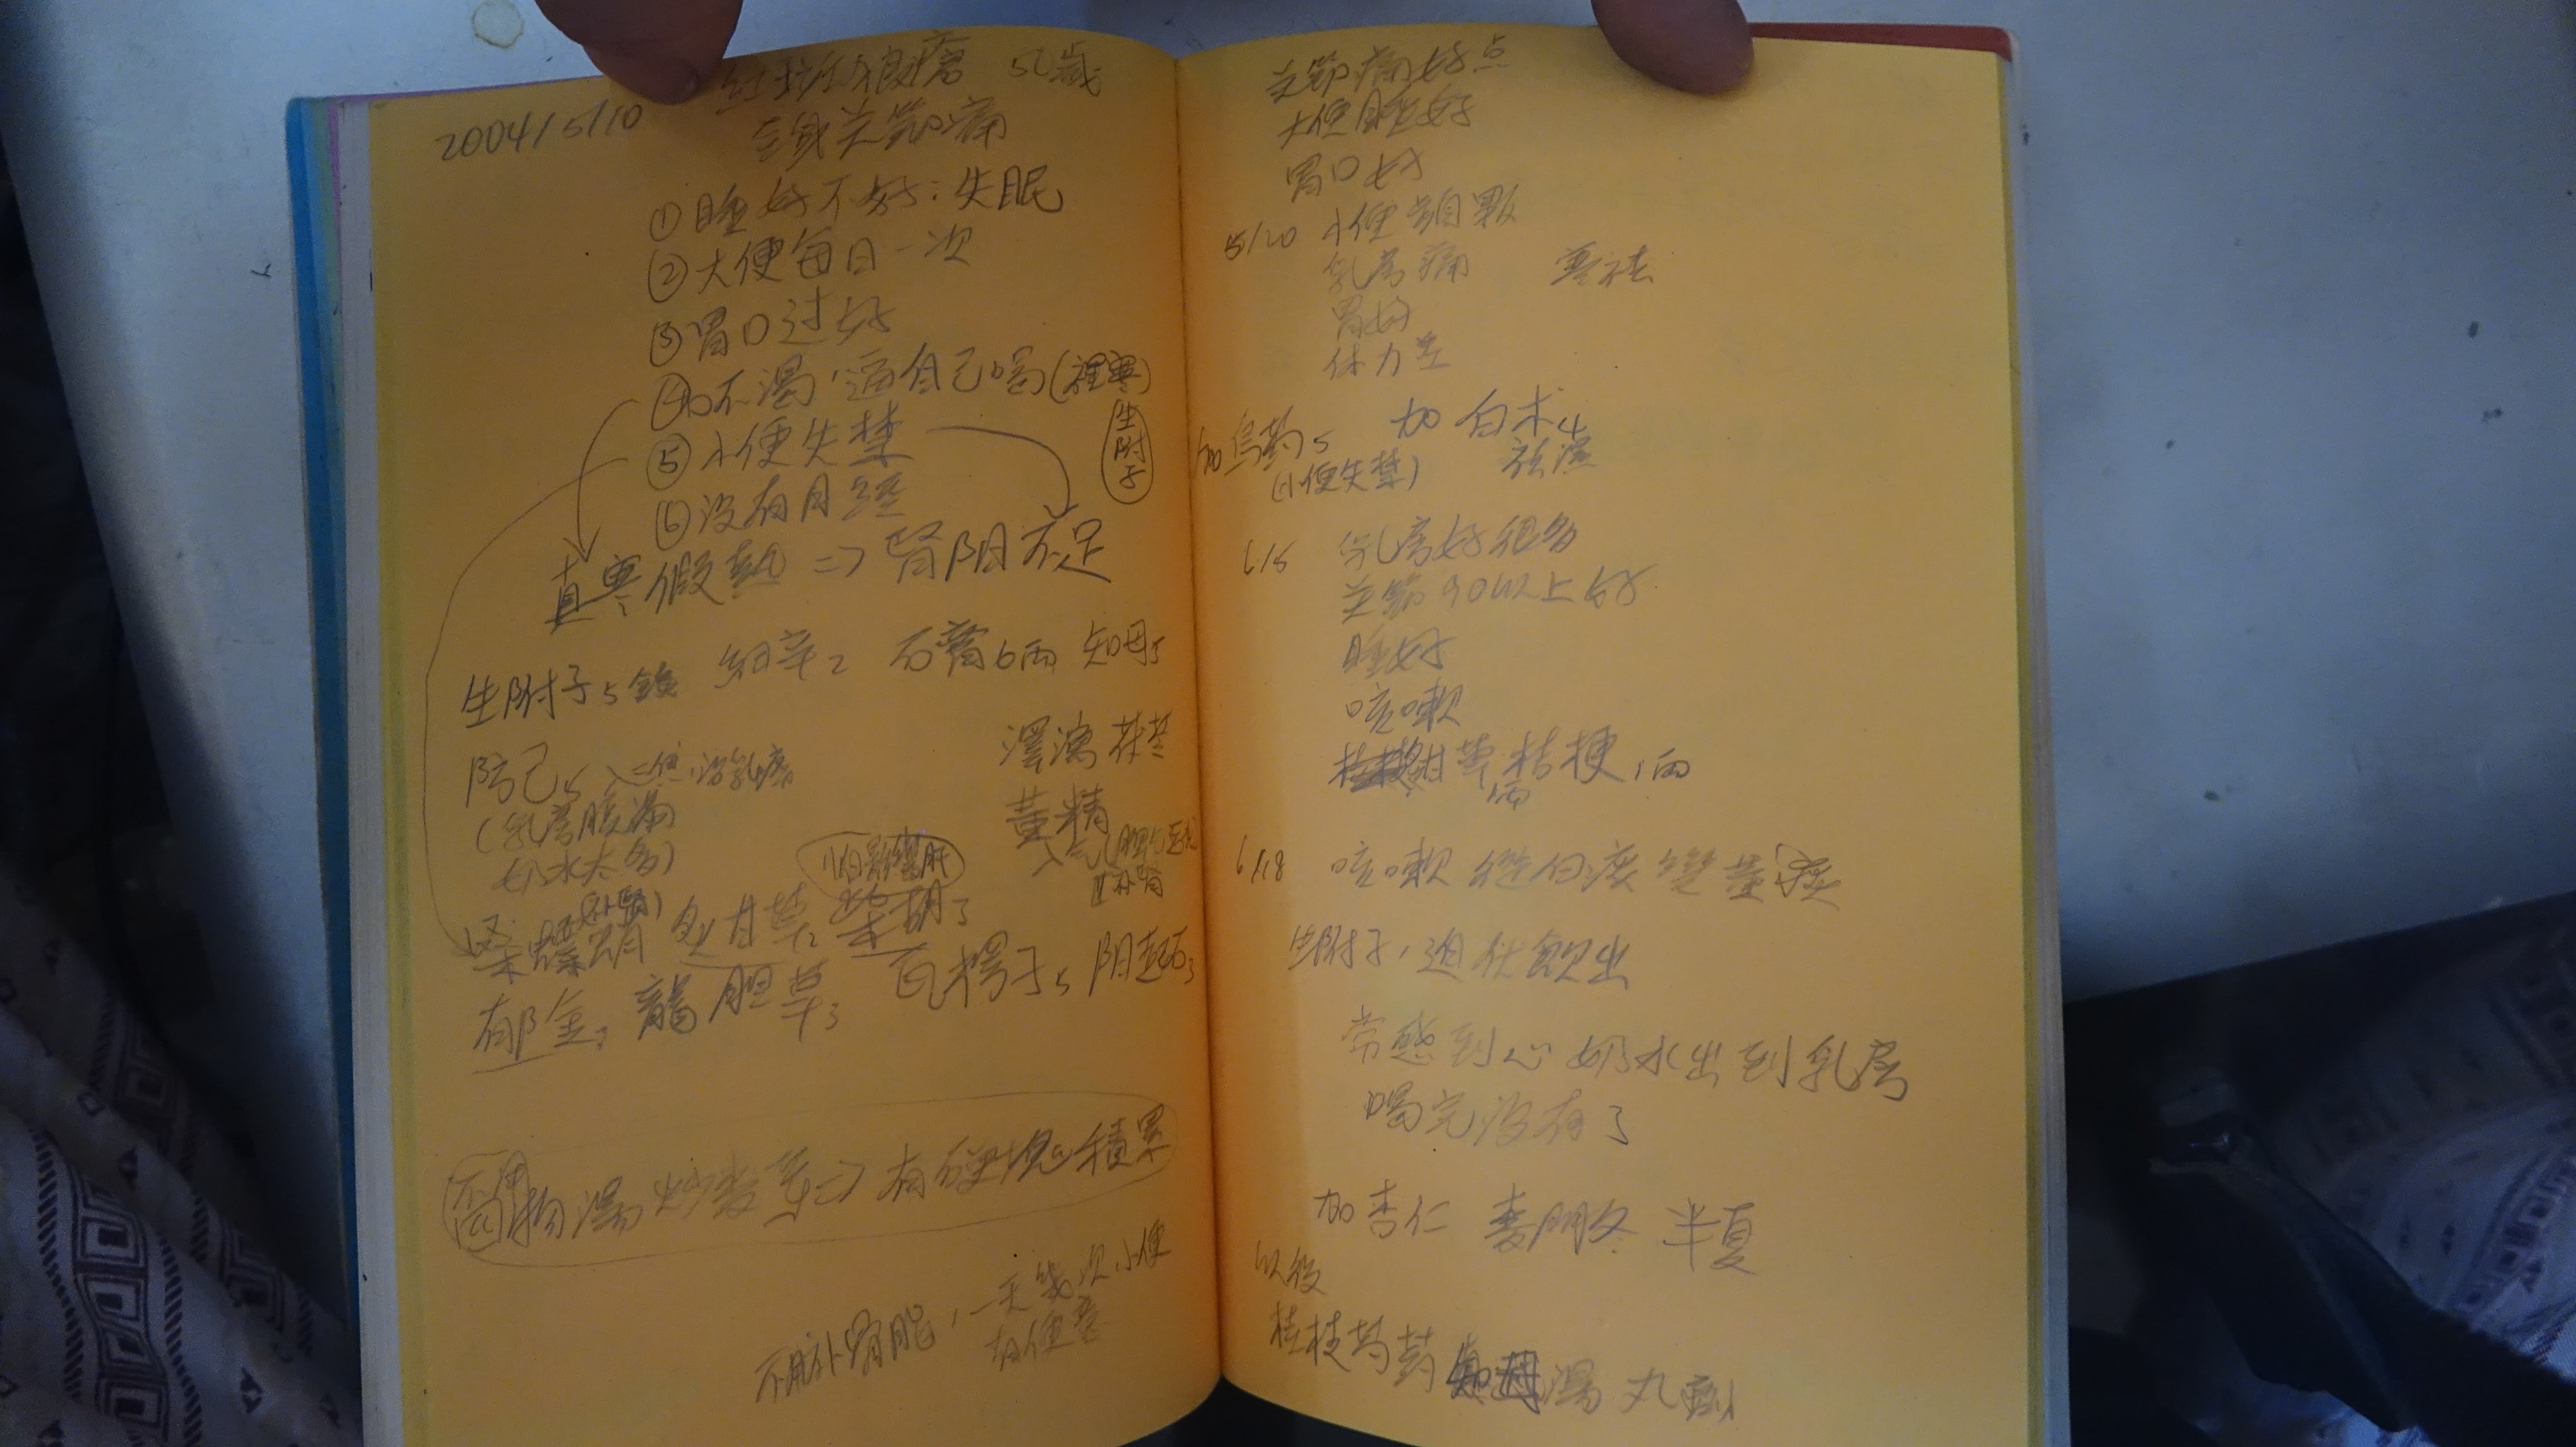 2004/5/10 紅斑狼瘡 52歲
全身关節痛
①睡好不好:失眠
②大便每日一次
③胃口过好
④不渴,逼自己喝(裡寒)
生附子
⑤小便失禁
⑥没有月经
真寒假熱 => 腎阳不足
生附子5錢 細辛2 石膏6两 知母5
防己5 入三焦,治乳癌
(乳房脹滿
奶水太多)
澤瀉 茯苓
黄精
補腎
怕影響肝
(补腎)
桑螵蛸 炙甘草2 柴胡3
郁金3 龍胆草3 瓦楞子5 阳起石3
不用补腎陽,一天幾次小便
有硬塊積累
关節痛好点
大便睡好
胃口好
5/20 小便頻
乳房痛
胃好
体力差
加烏药5 加白术4
(小便失禁) 祛濕
6/5 乳房好很多
关節90以上好
睡好
咳嗽
桔梗1两
6/18 咳嗽從白痰變黄痰
生附子,迫伏飲出
常感到心奶水出到乳房
喝完没有了
加杏仁 麥門冬 半夏
以後
桂枝芍药知母湯 丸劑